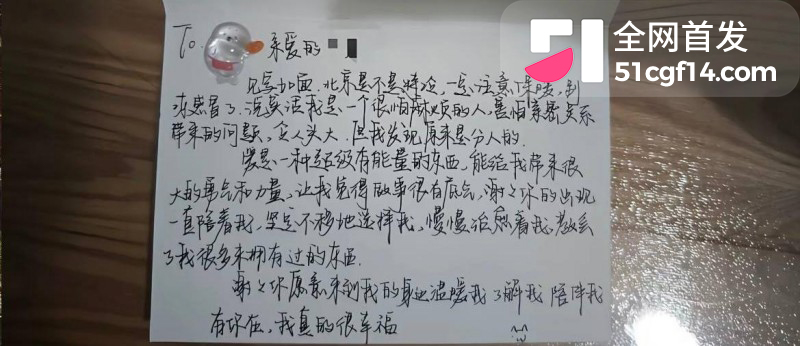 To: 亲爱的
见字如面.北京是不是特冷,一定注意保暖,别
冻感冒了.说实话我是一个很怕麻烦的人,害怕亲密关系
带来的问题,令人头大.但我发现原来是分人的.
爱是一种超级有能量的东西,能给我带来很
大的勇气和力量,让我觉得做事很有底气,谢谢你的出现
一直陪着我,坚定不移地选择我,慢慢治愈着我,教会
了我很多未拥有过的东西.
谢谢你愿意来到我的身边温暖我了解我陪伴我
有你在,我真的很幸福
全网首发
51cgf14.com